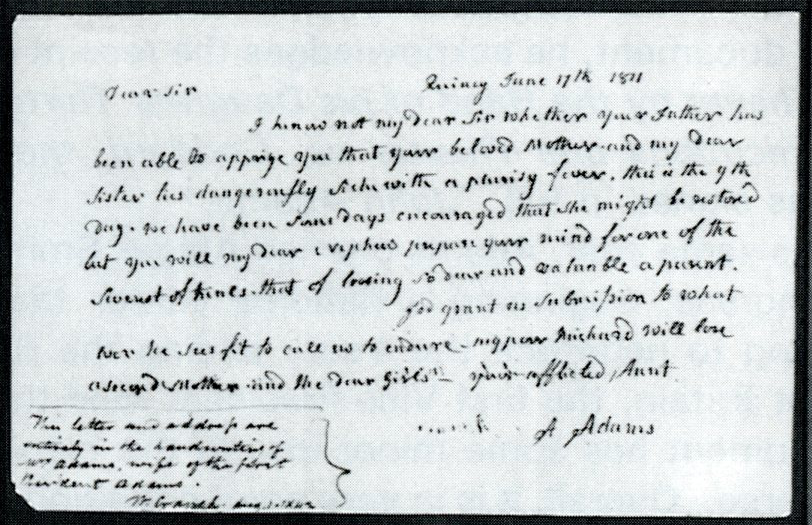 Dear Sir Quincy June 17th 1811
I know not my dear Sir whether your Father has
been able to apprize you that your beloved Mother and my dear
Sister lies dangerously Sick with a plurisy fever, this is the 9th
day. we have been Some days encouraged that She might be restored
but you will my dear Nephew prepare your mind for one of the
Severest of trials that of loosing So dear and valuable a parent.
God grant us Submission to what
ever he Sees fit to call us to endure my poor Richard will lose
a second Mother and the dear Girls — your afflicted Aunt
A Adams
This letter and address are
entirely in the handwriting of
Mrs Adams, wife of the first
President Adams.
W. Cranch